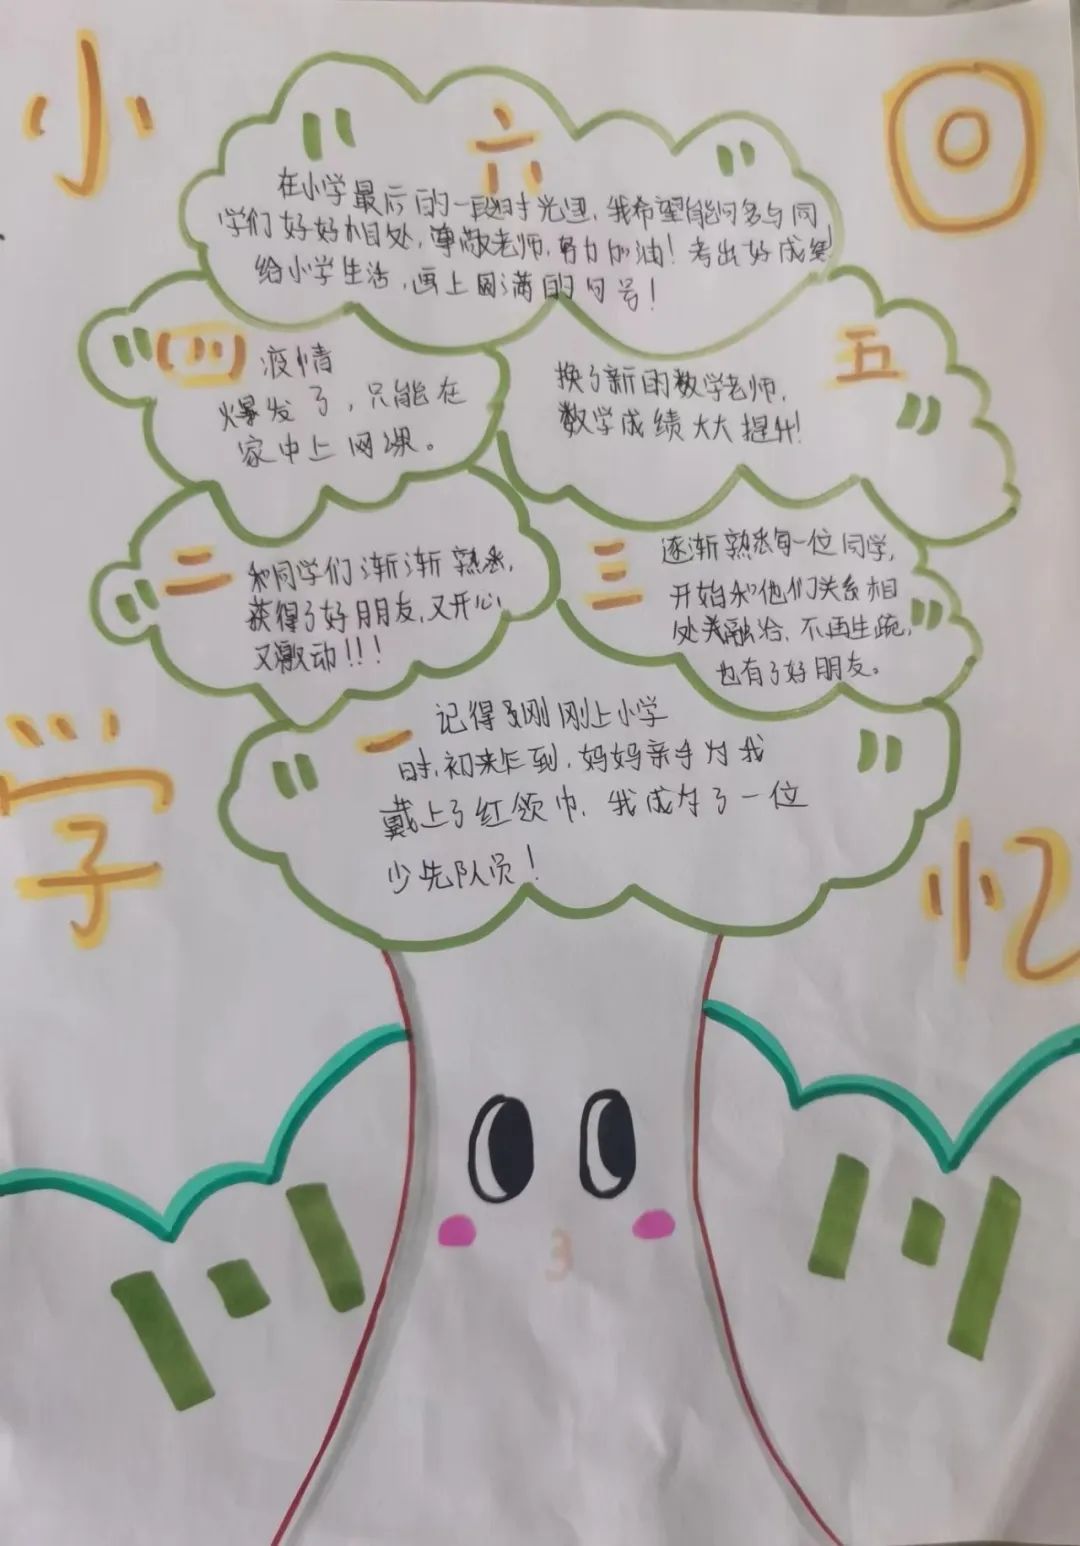 小
学
回
忆
六
在小学最后的一段时光里，我希望能够多与同
学们好好相处，尊敬老师，努力加油！考出好成绩
给小学生活，画上圆满的句号！
四
疫情
爆发了，只能在
家中上网课。
五
换了新的数学老师，
数学成绩大大提升！
二
和同学们渐渐熟悉，
获得了好朋友，又开心
又激动!!!
三
逐渐熟悉每一位同学，
开始和他们关系相
处关融洽，不再生疏，
也有了好朋友。
一
记得我刚刚上小学
时，初来乍到，妈妈亲手为我
戴上了红领巾，我成为了一位
少先队员！